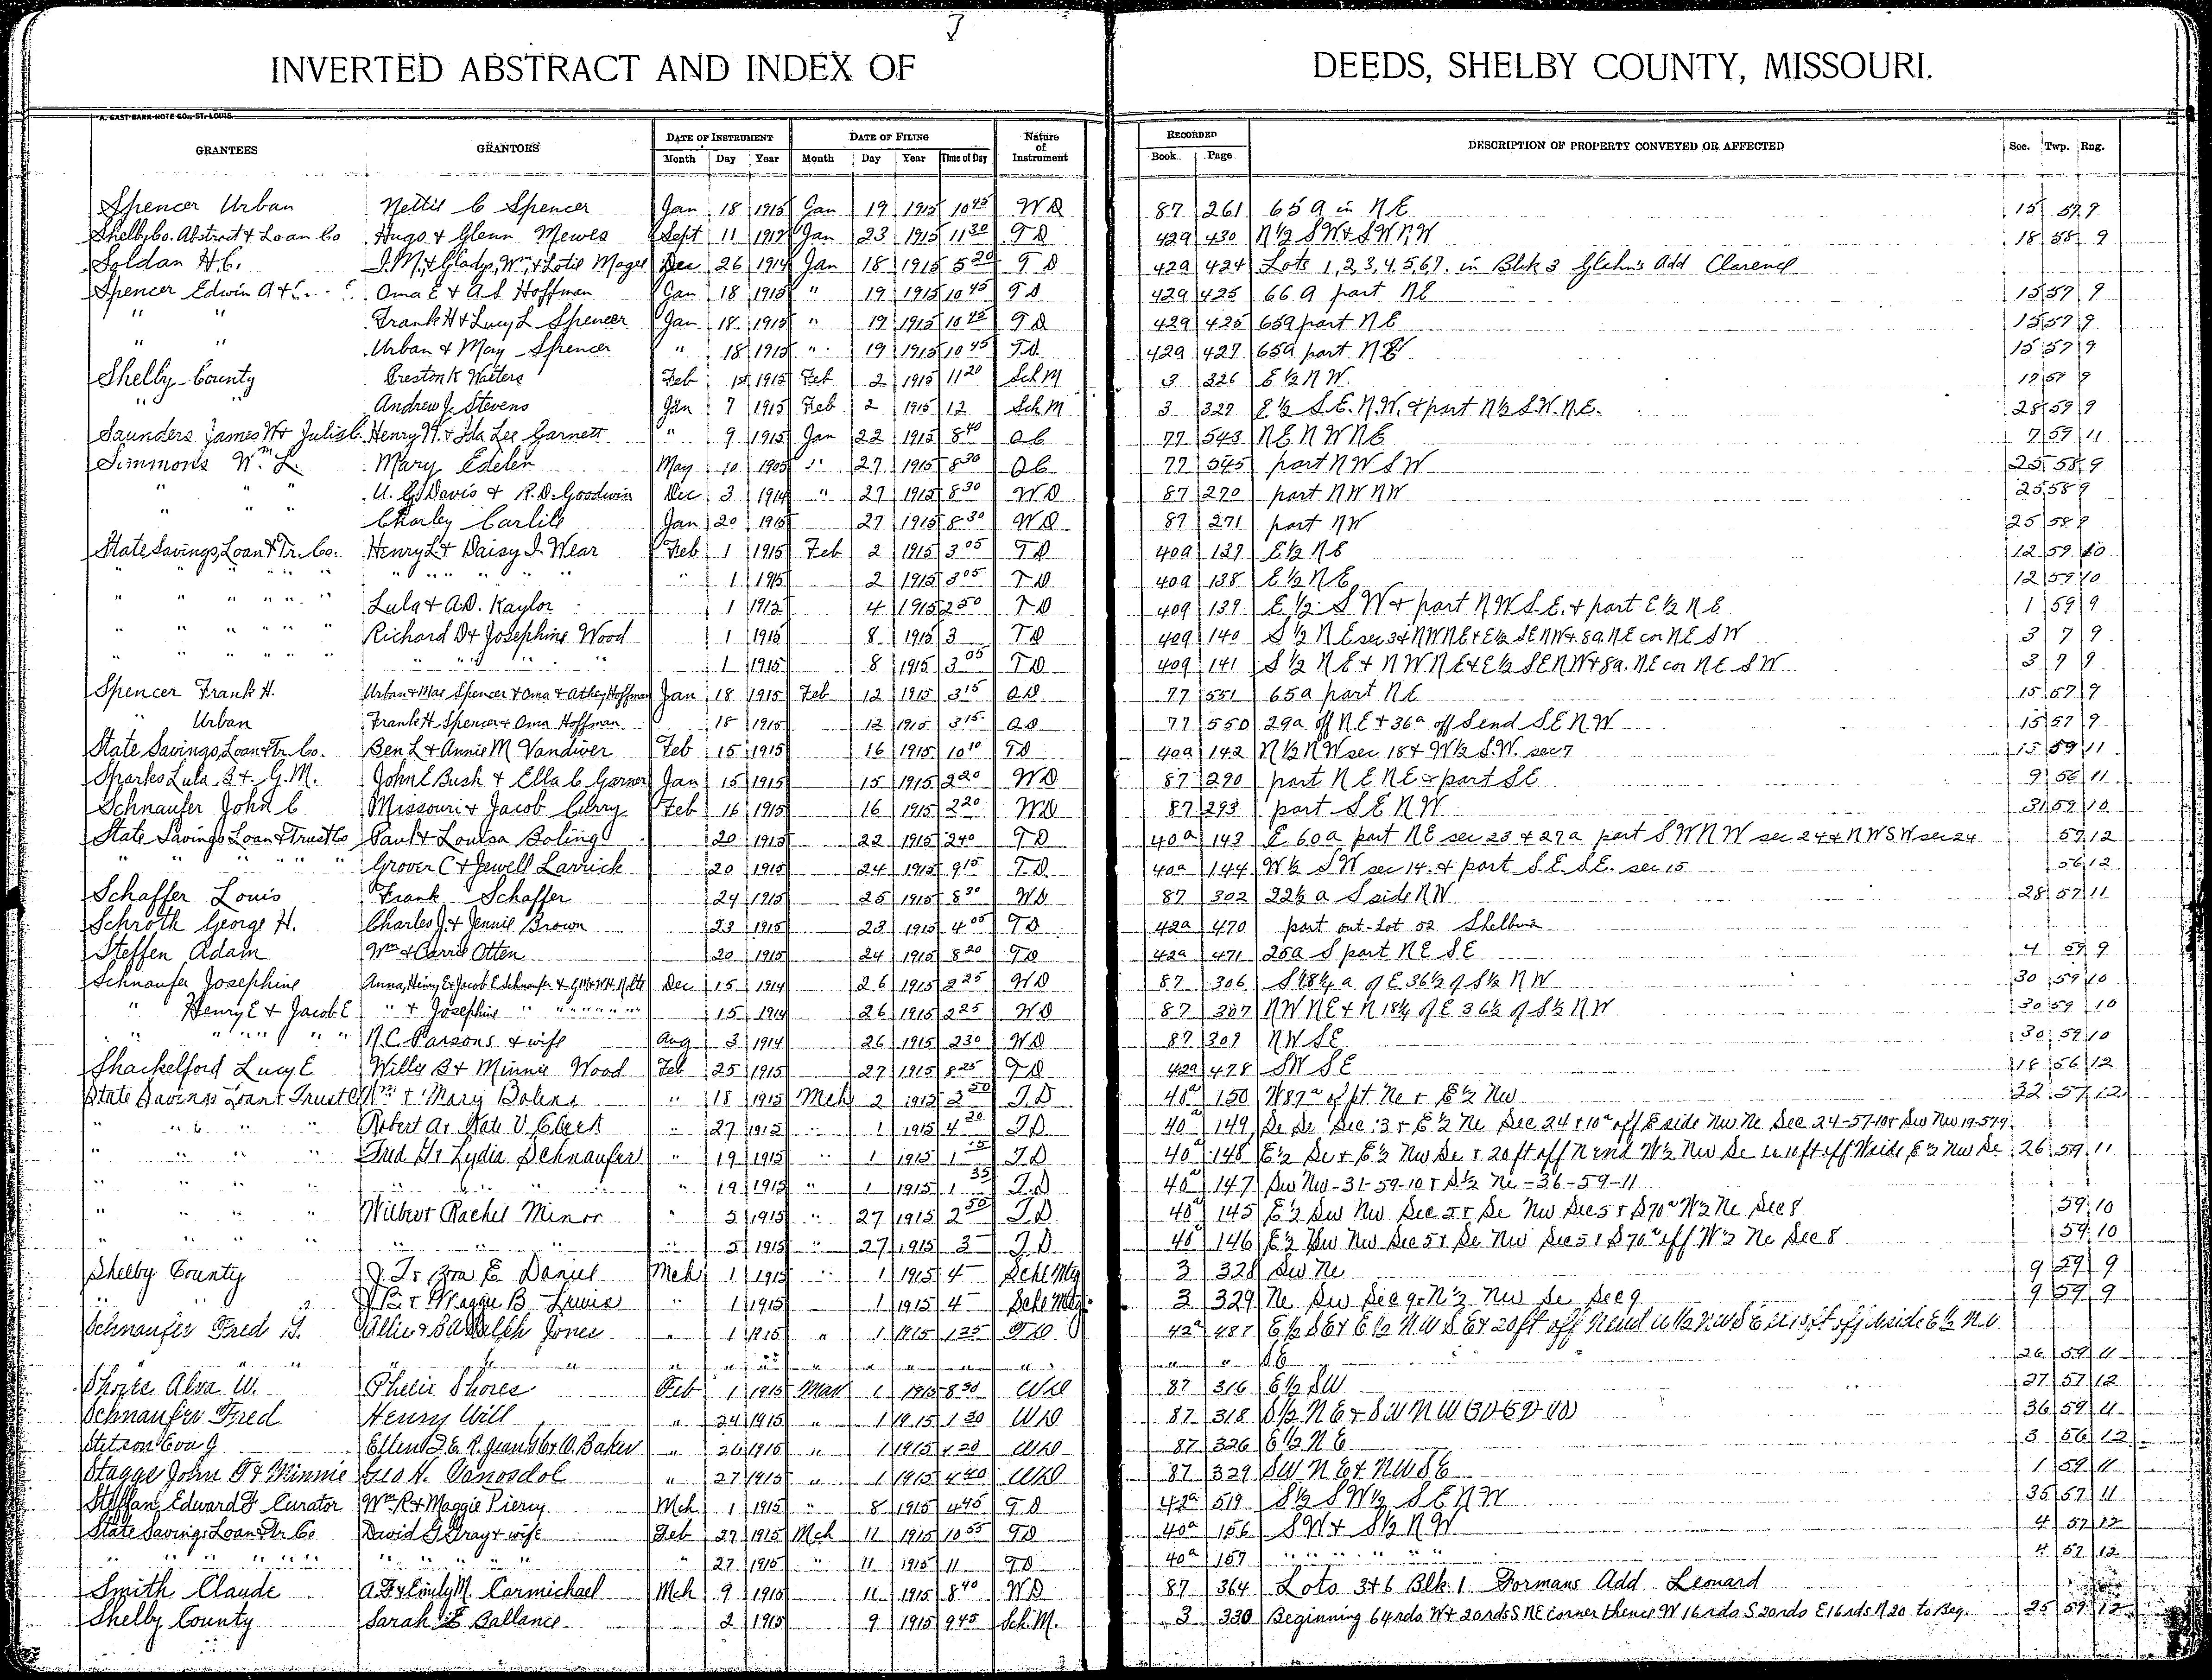 J
INVERTED ABSTRACT AND INDEX OF DEEDS, SHELBY COUNTY, MISSOURI.
A. GAST BANK-NOTE CO., ST. LOUIS.
GRANTEES GRANTORS DATE OF INSTRUMENT DATE OF FILING Nature of Instrument RECORDED DESCRIPTION OF PROPERTY CONVEYED OR AFFECTED Sec. Twp. Rng.
Month Day Year Month Day Year Time of Day Book Page
Spencer Urban Nettie C Spencer Jan 18 1915 Jan 19 1915 10 45 WD 87 261 65 a in NE 15 57 9
Shelby Co. Abstract & Loan Co Hugo & Glenn Mewes Sept 11 Jan 23 1915 11 30 TD 42a 430 N½ SW & SW NW 18 58 9
Soldan H.C. J.M. & Gladys, Wm & Lotie Magee Dec 26 1914 Jan 18 1915 5 20 TD 42a 424 Lots 1,2,3,4,5,6,7. in Blk 3 Glahn's Add Clarence
Spencer Edwin A & Oma E & A S Hoffman Jan 18 1915 " 19 1915 10 45 TD 42a 425 66 a part NE 15 57 9
" " Frank H & Lucy L Spencer Jan 18 1915 " 19 1915 10 45 TD 42a 65a part NE 15 57 9
" " Urban & May Spencer " 18 1915 " 19 1915 10 45 T.D. 42a 427 65a part NE 15 57 9
Shelby County Preston K Walters Feb 1st 1915 Feb 2 1915 11 20 Sch M 3 326 E½ NW. 57 9
" " Andrew J. Stevens Jan 7 1915 Feb 2 1915 12 Sch M 3 327 E½ S.E. N.W. & part N½ S.W. N.E. 28 59 9
Saunders James W & Julia C. Henry H. & Ida Lee Garnett " 9 1915 Jan 22 1915 8 40 QC 77 543 NE NW NE 7 59 11
Simmons Wm L. Mary Edelen May 10 1905 " 27 1915 8 30 QC 77 545 part NW SW 25 58 9
" " " U. G. Davis & R.D. Goodwin Dec 3 1914 " 27 1915 8 30 WD 87 270 part NW NW 25 58 9
" " " Charley Carlile Jan 20 1915 27 1915 8 30 WD 87 271 part NW 25 58 9
State Savings, Loan & Tr. Co. Henry L & Daisy I. Wear Feb 1 1915 Feb 2 1915 3 05 TD 40a 137 E½ NE 12 59 10
" " " " " " " " " " 1 1915 2 1915 3 05 TD 40a 138 E½ NE 12 59 10
" " " " " Lula & A.D. Kaylor 1 4 1915 2 50 TD 40a 139 E½ SW & part NW S.E. & part E½ NE 1 59 9
" " " " " Richard D & Josephine Wood 1 1915 8 1915 3 TD 40a 140 S½ NE sec 3 & NW NE & E½ SE NW & 8a. NE cor NE SW 3 7 9
" " " " " " " " " 1 1915 8 1915 3 05 TD 40a 141 S½ NE & NW NE & E½ SE NW & 8a. NE cor NE SW 3 7 9
Spencer Frank H. Urban & Mae Spencer & Oma & Athey Hoffman Jan 18 1915 Feb 12 1915 3 15 77 551 65a part NE 15 57 9
" Urban Frank H Spencer & Oma Hoffman 18 1915 12 1915 3 15 77 550 29a off NE & 36a off S end SE NW 15 57 9
State Savings, Loan & Tr. Co. Ben L & Annie M Vandiver Feb 15 1915 16 1915 10 10 TD 40a 142 N½ NW sec 18 & W½ S.W. sec 7 59 11
Sparks Lula B & G.M. John E Bush & Ella C Garner Jan 15 1915 15 1915 2 20 WD 87 290 part NE NE & part SE 9 56 11
Schnaufer John C Missouri & Jacob Curry Feb 16 1915 16 1915 2 20 WD 87 293 part SE NW 31 59 10
State Savings Loan & Trust Co Paul & Louisa Boling 20 1915 22 1915 2 40 TD 40a 143 E 60a part NE sec 23 & 27a part SW NW sec 24 & NW SW sec 24 57 12
" " " " " Grover C & Jewell Larrick 20 1915 24 1915 9 15 TD 40a 144 W½ SW sec 14. & part S.E. S.E. sec 15 56 12
Schaffer Louis Frank Schaffer 24 1915 25 1915 8 30 WD 87 302 22½ a S side NW 28 57 11
Schroth George H. Charles J. & Jennie Brown 23 1915 23 1915 4 05 TD 42a 470 part out-Lot 52 Shelbina
Steffen Adam Wm & Carrie Otten 20 1915 24 1915 8 20 TD 42a 471 25a S part NE SE 4 59 9
Schnaufer Josephine Anna, Henry E & Jacob E Schnaufer & Dec 15 1914 26 1915 2 25 WD 87 306 S 18¼ a of E 36½ of S½ NW 30 59 10
" Henry E & Jacob E " & Josephine " " " " " 15 1914 26 1915 2 25 WD 87 307 NW NE & N 18¼ of E 36½ of S½ NW 30 59 10
" " " " " N.C. Parsons & wife Aug 3 1914 26 1915 2 30 WD 87 309 NW SE 30 59 10
Shackelford Lucy E Willy B & Minnie Wood Feb 25 1915 27 1915 8 25 TD 42a 478 SW SE 18 56 12
State Savings Loan & Trust Co Wm & Mary " 18 1915 Mch 2 T.D 40a 150 W 87a of pt Ne & E½ Nw 22 57 12
" " " " Robert A & Kate V. " 27 1915 " 1 1915 4 20 T.D. 40a 149 Se Se Sec 13 & E½ Ne Sec 24 & 10a off E side Nw Ne Sec 24-57-10 & Sw Nw 19-57-9
" " " " Fred H & Lydia Schnaufer " 19 1915 " 1 1915 1 T.D 40a 148 E½ Se & E½ Nw Se & 20ft off N end W½ Nw Se 10ft off W side E½ Nw Se 26 59 11
" " " " " " " 19 1915 " 1 1915 1 35 T.D 40a 147 Sw Nw-31-59-10 & S½ Ne-36-59-11
" " " " Wilber & Rachel Minor " 5 1915 " 27 1915 2 50 T.D 40a 145 E½ Sw Nw Sec 5 & Se Nw Sec 5 & S 70a W½ Ne Sec 8 59 10
" " " " " " " 5 1915 " 27 1915 3 T.D 40a 146 E½ Sw Nw Sec 5 & Se Nw Sec 5 & S 70a off W½ Ne Sec 8 59 10
Shelby County J. T. & E Daniel Mch 1 1915 " 1 1915 4 Schl Mtg 3 328 Sw Ne 9 59 9
" " & Maggie B Lewis " 1 1915 1 1915 4 Schl Mtg 3 329 Ne Sw Sec 9 & N½ Nw Se Sec 9 9 59 9
Schnaufer Fred H. Jones " 1 1915 " 1 1915 1 25 TD 42a 487 E½ SE & E½ NW SE & 20 ft off N end W½ NW SE 10 ft off side E½ N.W
" " " " " " " " " " " " " S.E 26 59 11
Shores Alva W. Phelix Shores Feb 1 1915 Mar 1 1915 8 30 WD 87 316 E½ SW 27 57 12
Schnaufer Fred Henry Will " 24 1915 " 1 1915 1 30 WD 87 318 S½ NE & SW NW 36 59 11
Stetson Eva G Ellen " 26 1915 " 1 1915 1 20 WD 87 326 E½ NE 3 56 12
Stagge John F & Minnie Geo H. Vanosdol " 27 1915 " 1 1915 4 40 WD 87 329 SW NE & NW SE 1 59 11
Steffan Edward F Curator Wm R & Maggie Piercy Mch 1 1915 " 8 1915 4 45 TD 42a 519 S½ SW½ SE NW 35 57 11
State Savings Loan & Tr. Co David G Gray & wife Feb 27 1915 Mch 11 1915 10 55 TD 40a 156 SW & S½ NW 4 57 12
" " " " " " " " " " " 27 1915 " 11 1915 11 TD 40a 157 " " " " " " 4 57 12
Smith Claude A.F. & Emily M. Carmichael Mch 9 1915 11 1915 8 40 WD 87 364 Lots 3 & 6 Blk 1 Dormans Add Leonard
Shelby County Sarah E Ballance 2 1915 9 1915 9 45 Sch. M. 3 330 Beginning 64 rds W & 20 rds S NE corner thence W 16 rds S 20 rds E 16 rds N 20 to Beg. 25 59 12